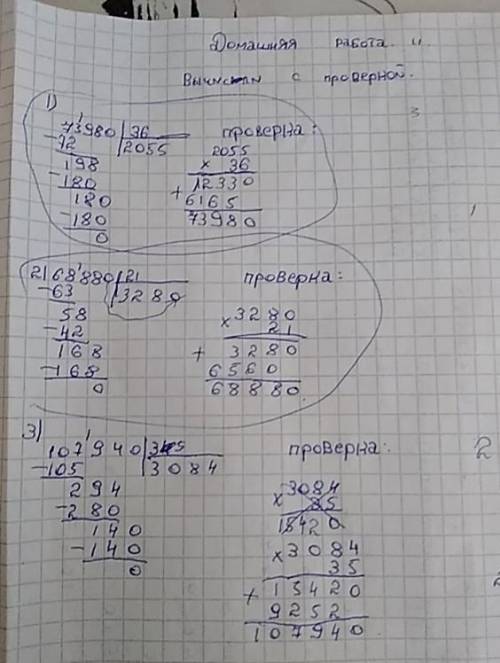 Домашняя работа.
с проверной.
1)
73980 36 проверна:
72 2055 2055
198 × 36
-180 12330
180 + 6165
-180 73980
0
2) 68880 21 проверна:
-63 3280
58 × 3280
-42 21
168 + 3280
-168 6560
0 68880.
3)
107940 35 проверна:
-105 3084
294 × 3084
-280 85
140 18420
-140 × 3084
0 35
+ 15420
9252
107940.